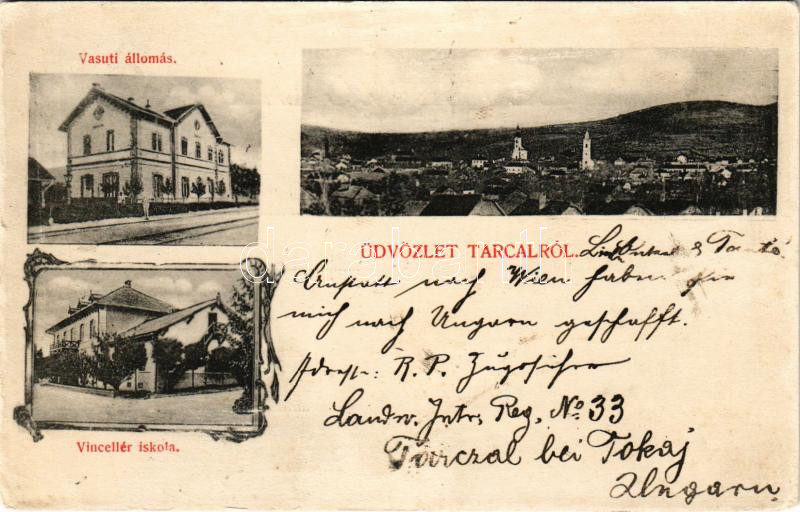 Vasuti állomás.
ÜDVÖZLET TARCALRÓL.
Vincellér iskola.
Lieber Onkel & Tante
Anstatt nach Wien haben sie
mich nach Ungarn geschafft.
Adresse: R. P.
Landw. Intr. Reg. No 33
Tarczal bei Tokaj
Ungarn